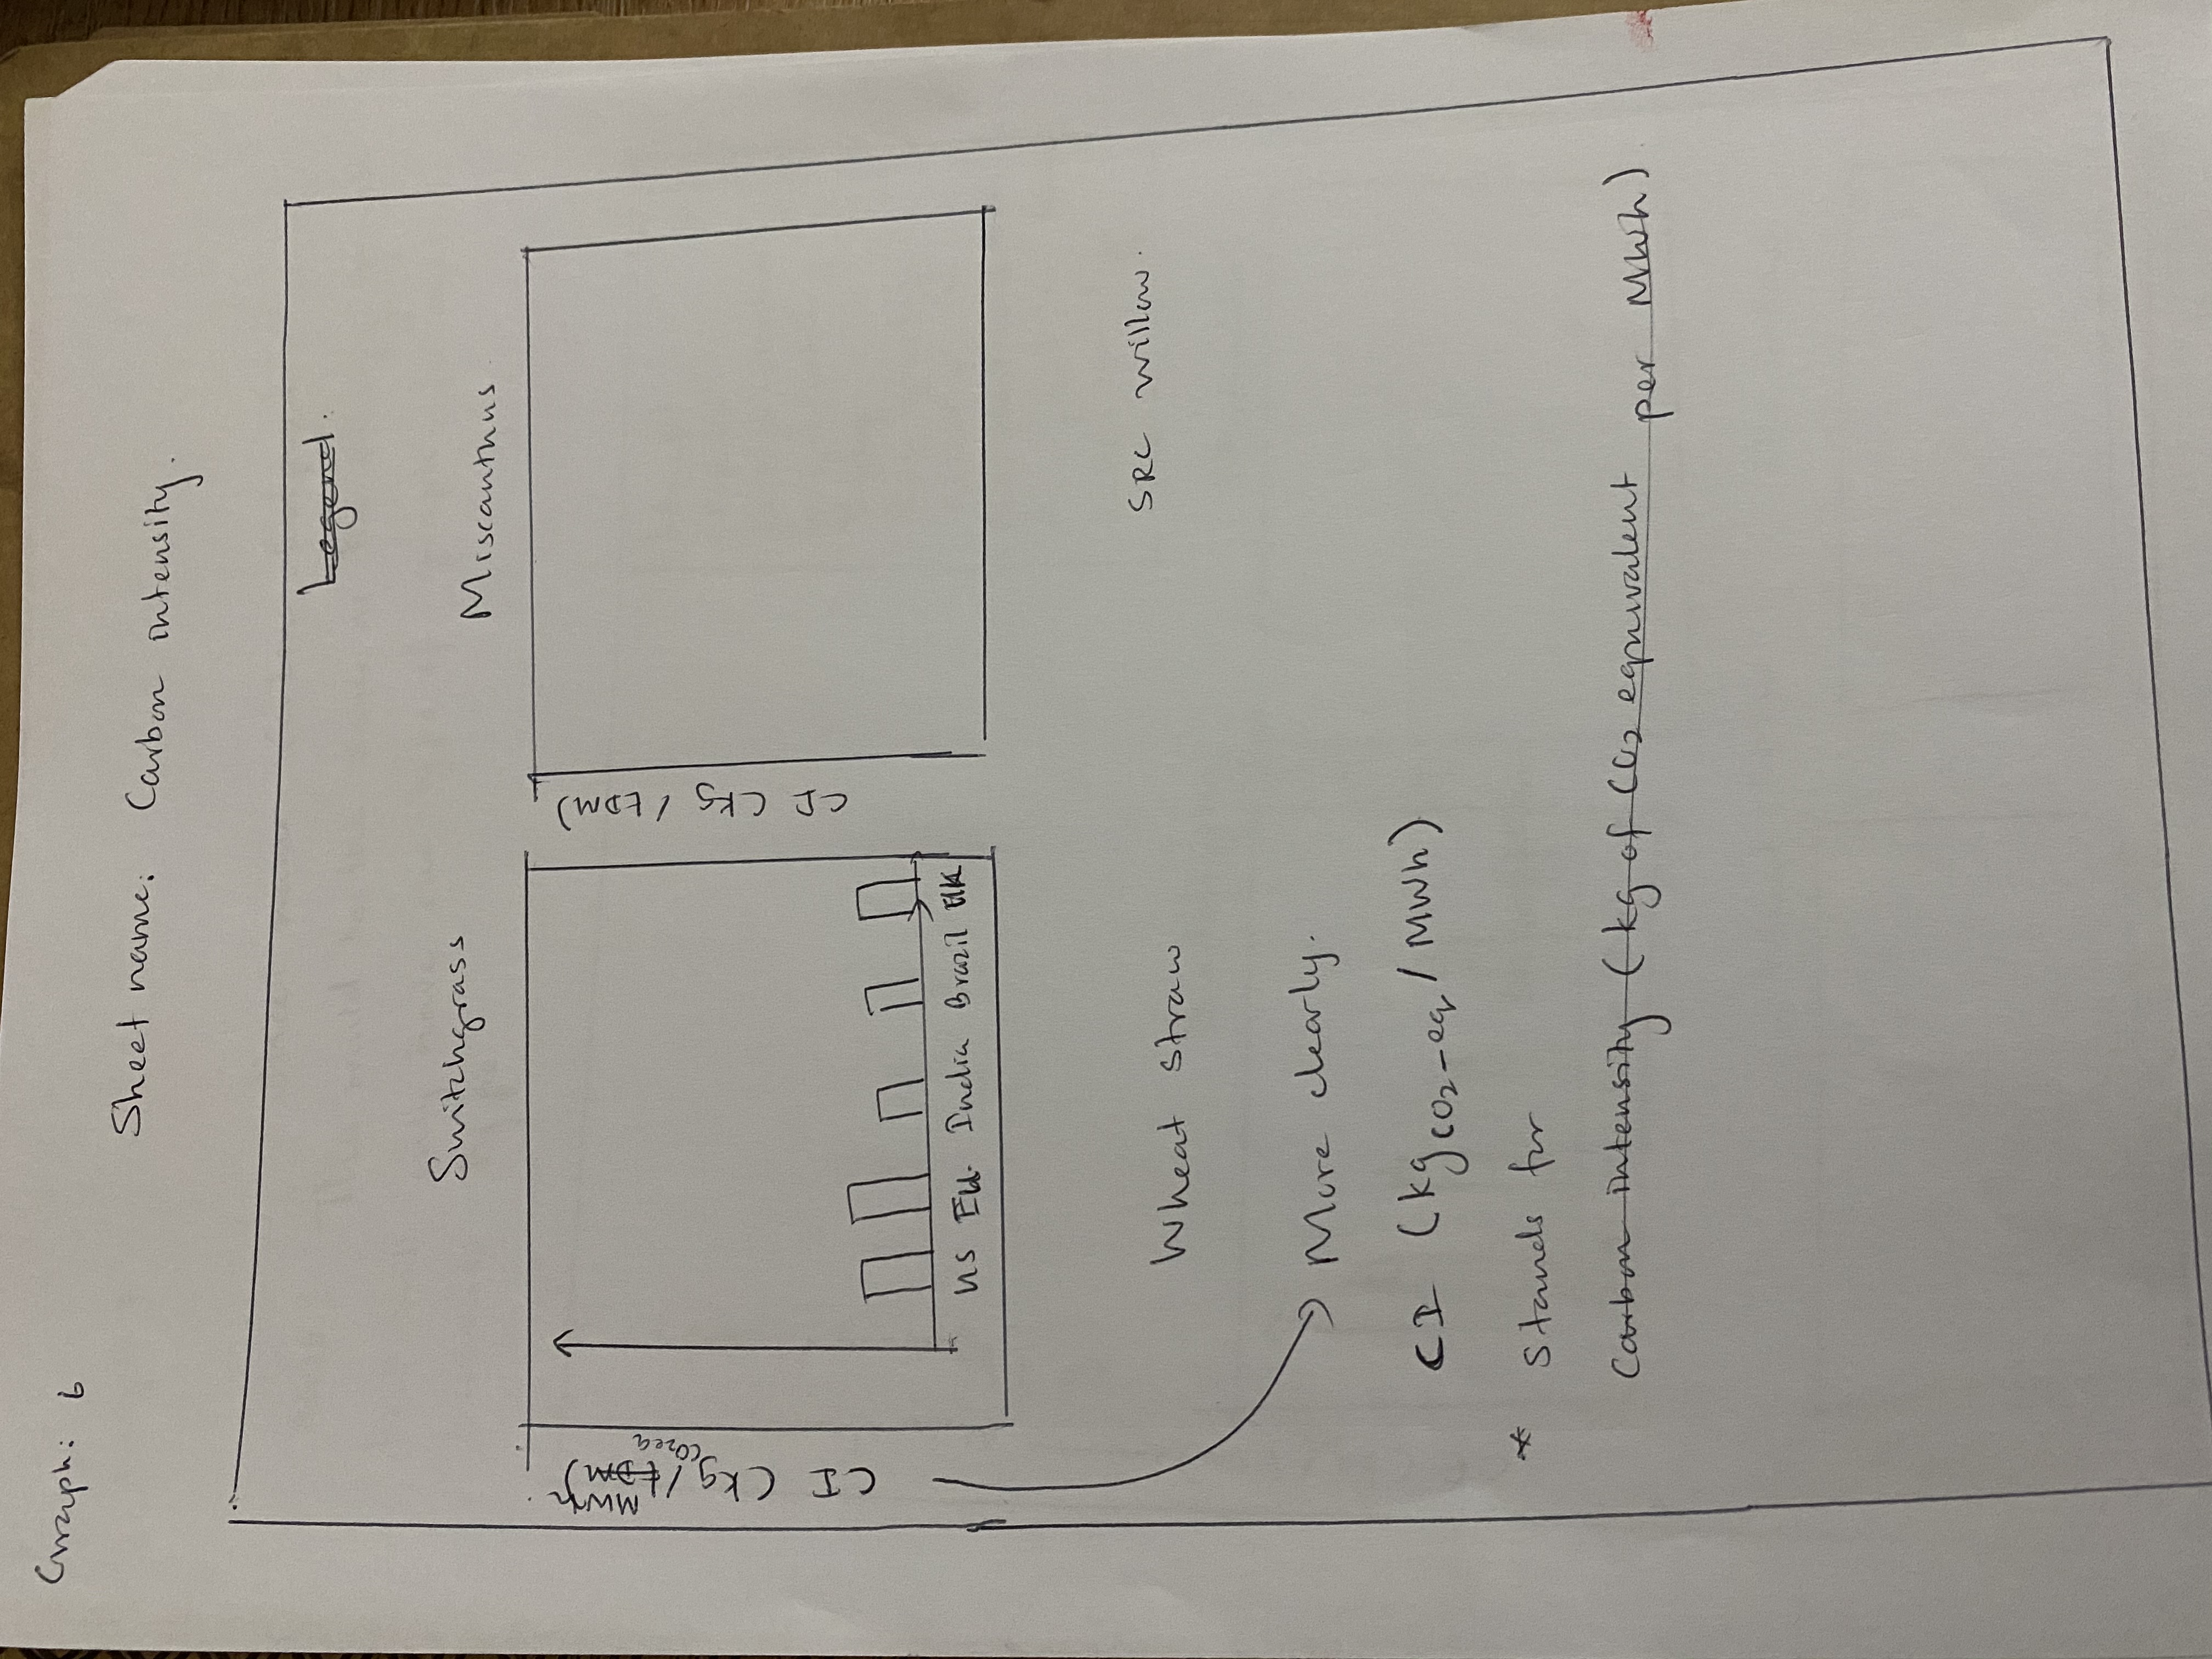 Graph: 6
Sheet name: Carbon intensity.
Legend.
Switchgrass
Miscanthus
CI (kg CO2eq / tDM MWh)
CI (kg / tDM)
US EU India Brazil UK
Wheat straw
SRC willow.
More clearly.
CI (kg CO2-eq / MWh)
* Stands for
Carbon intensity (kg of CO2 equivalent per MWh)